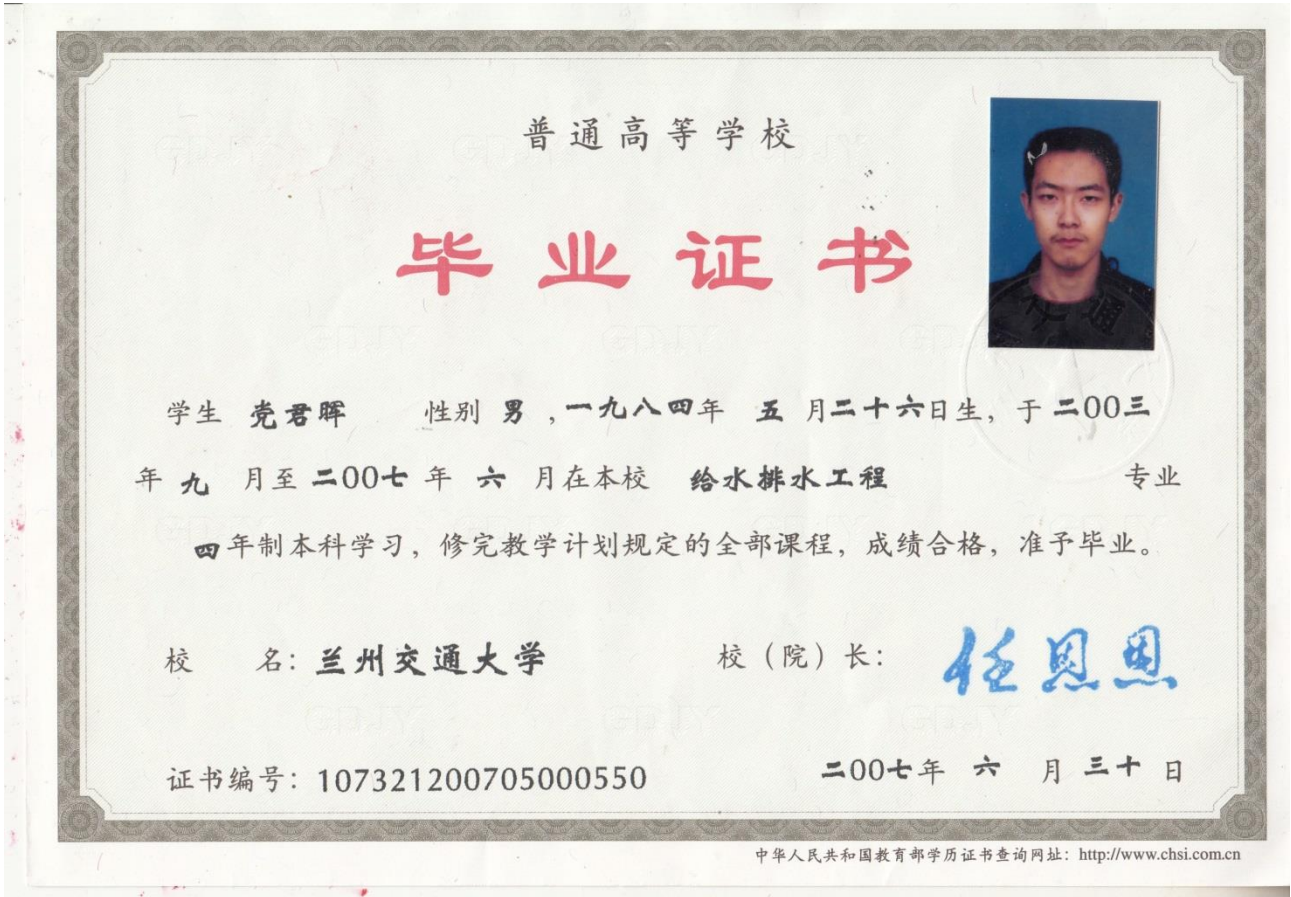 普通高等学校
毕业证书
学生 党君晖 性别 男 ,一九八四年 五 月二十六日生, 于 二00三
年 九 月至 二00七 年 六 月在本校 给水排水工程 专业
四年制本科学习, 修完教学计划规定的全部课程, 成绩合格, 准予毕业。
校 名: 兰州交通大学 校(院)长: 任恩恩
证书编号: 107321200705000550 二00七年 六 月 三十 日
中华人民共和国教育部学历证书查询网址: http://www.chsi.com.cn